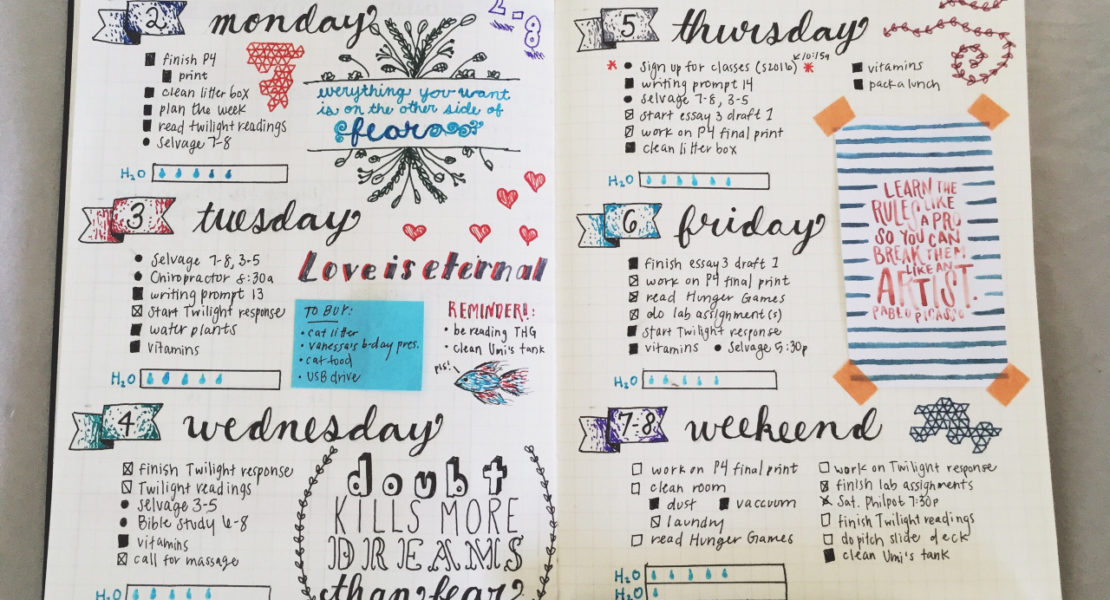 2 monday
2-8
finish P4
print
clean litter box
plan the week
read twilight readings
selvage 7-8
H2O
everything you want
is on the other side of
fear
3 tuesday
selvage 7-8, 3-5
Chiropractor 8:30a
writing prompt 13
start Twilight response
water plants
vitamins
H2O
Love is eternal
TO BUY:
cat litter
vanessa's b-day pres.
cat food
USB drive
REMINDER!:
be reading THG
clean Umi's tank
pls!
4 wednesday
finish Twilight response
Twilight readings
selvage 3-5
Bible study 6-8
vitamins
call for massage
H2O
doubt
KILLS MORE
DREAMS
than fear
5 thursday
sign up for classes (S2016)
writing prompt 14
selvage 7-8, 3-5
start essay 3 draft 1
work on P4 final print
clean litter box
vitamins
pack a lunch
H2O
6 friday
finish essay 3 draft 1
work on P4 final print
read Hunger Games
do lab assignment(s)
start Twilight response
vitamins selvage 5:30p
H2O
LEARN THE
RULES LIKE
A PRO
SO YOU CAN
BREAK THEM
LIKE AN
ARTIST.
PABLO PICASSO
7-8 weekeend
work on P4 final print
clean room
dust vaccuum
laundry
read Hunger Games
work on Twilight response
finish lab assignments
Sat. Philpot 7:30p
finish Twilight readings
do pitch slide deck
clean Umi's tank
H2O
H2O